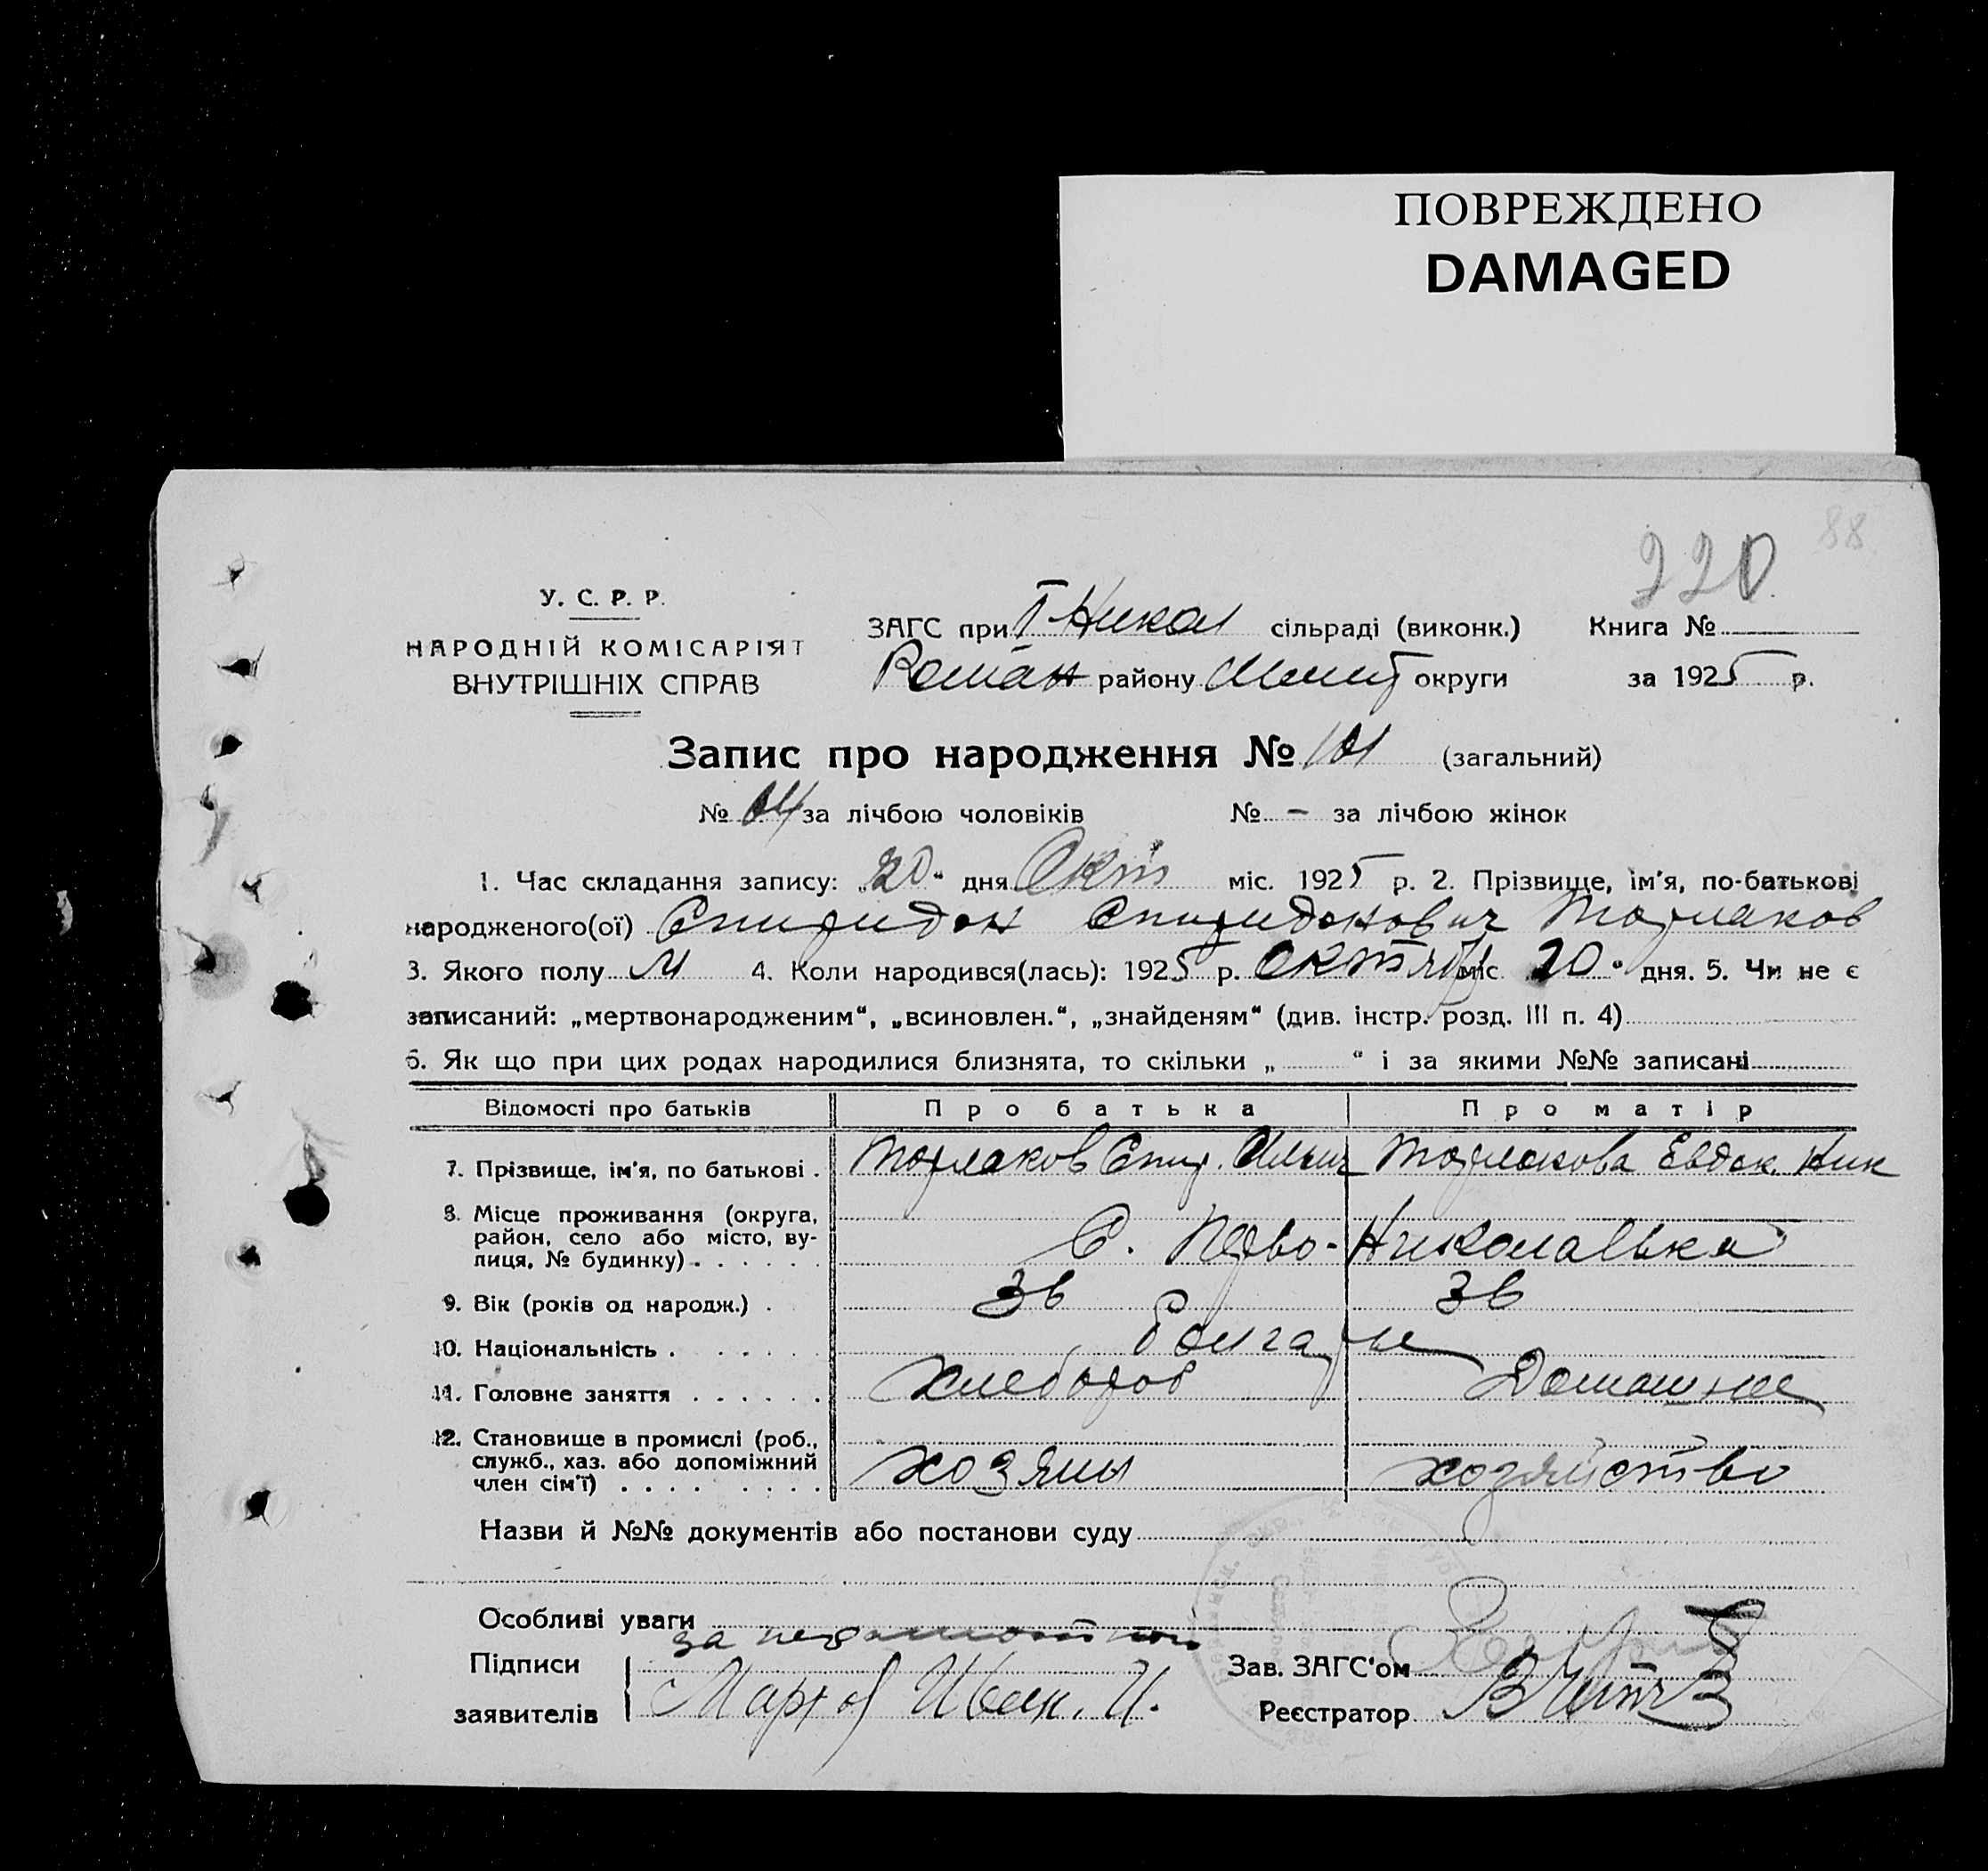 ПОВРЕЖДЕНО
DAMAGED
88
220
У. С. Р. Р.
НАРОДНІЙ КОМІСАРІЯТ
ВНУТРІШНІХ СПРАВ
ЗАГС при Никол сільраді (виконк.) Книга №
Роман району округи за 1925 р.
Запис про народження № 101 (загальний)
№ за лічбою чоловіків № - за лічбою жінок
1. Час складання запису: „20“ дня Окт міс. 1925 р. 2. Прізвище, ім'я, по-батькові
народженого(ої) Спиридон Спиридонович Тарлаков
3. Якого полу М 4. Коли народився(лась): 1925 р. октяб міс 20 “ дня. 5. Чи не є
записаний: „мертвонародженим“, „всиновлен.“, „знайденям“ (див. інстр. розд. III п. 4)
6. Як що при цих родах народилися близнята, то скільки „ “ і за якими №№ записані
Відомості про батьків Про батька Про матір
7. Прізвище, ім'я, по батькові . Тарлаков Спир. Ильич Тарлакова Евдок. Ник
8. Місце проживання (округа,
район, село або місто, ву-
лиця, № будинку) С. Перво-Николаевка
9. Вік (років од народж.) . 36 36
10. Національність . Болгары
11. Головне заняття Хлебороб Домашнее
12. Становище в промислі (роб.,
служб., хаз. або допоміжний
член сім'ї) хозяин хозяйство
Назви й №№ документів або постанови суду
Особливі уваги
за неграмотный
Підписи
заявителів Иван. И.
Зав. ЗАГС'ом
Реєстратор